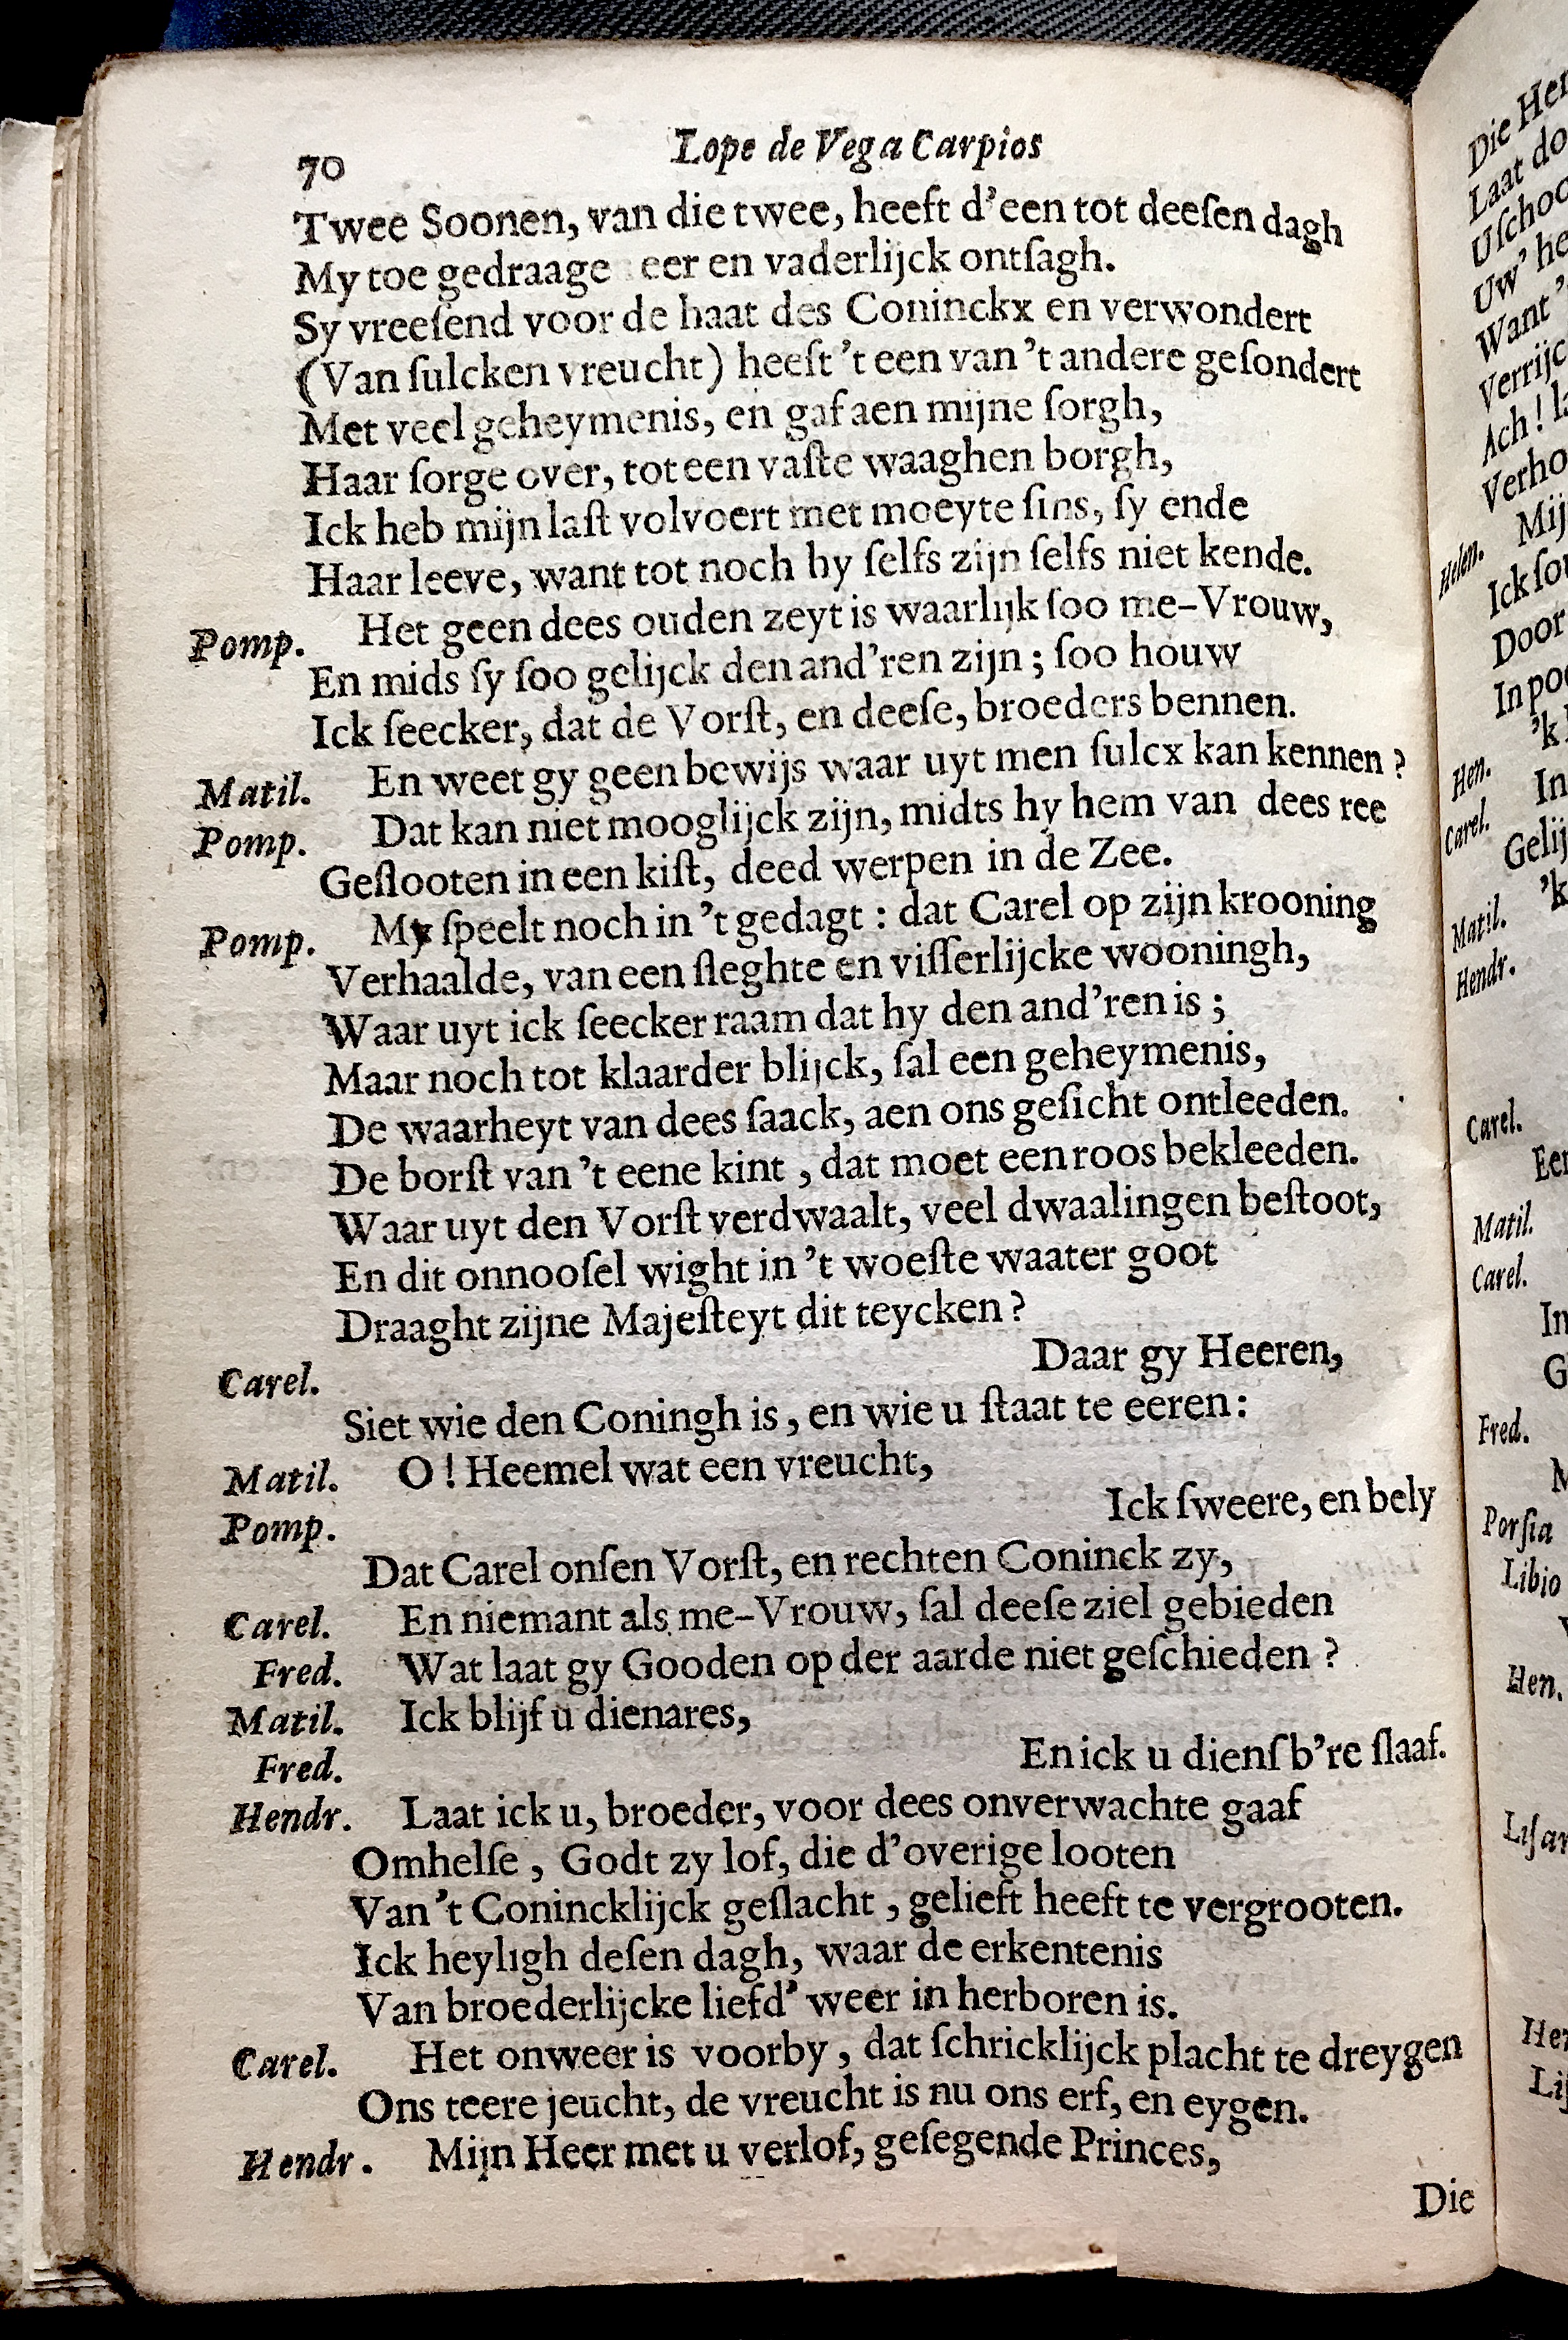 70 Lope de Vega Carpios
Twee Soonen, van die twee, heeft d'een tot deeſen dagh
My toe gedraage eer en vaderlijck ontſagh.
Sy vreeſend voor de haat des Coninckx en verwondert
(Van ſulcken vreucht) heeft 't een van 't andere geſondert
Met veel geheymenis, en gaf aen mijne ſorgh,
Haar ſorge over, tot een vaſte waaghen borgh,
Ick heb mijn laſt volvoert met moeyte ſins, ſy ende
Haar leeve, want tot noch hy ſelfs zijn ſelfs niet kende.
Pomp. Het geen dees ouden zeyt is waarlijk ſoo me-Vrouw,
En mids ſy ſoo gelijck den and'ren zijn; ſoo houw
Ick ſeecker, dat de Vorſt, en deeſe, broeders bennen.
Matil. En weet gy geen bewijs waar uyt men ſulcx kan kennen?
Pomp. Dat kan niet mooglijck zijn, midts hy hem van dees ree
Geſlooten in een kiſt, deed werpen in de Zee.
Pomp. My ſpeelt noch in 't gedagt: dat Carel op zijn krooning
Verhaalde, van een ſleghte en viſſerlijcke wooningh,
Waar uyt ick ſeecker raam dat hy den and'ren is;
Maar noch tot klaarder blijck, ſal een geheymenis,
De waarheyt van dees ſaack, aen ons geſicht ontleeden.
De borſt van 't eene kint, dat moet een roos bekleeden.
Waar uyt den Vorſt verdwaalt, veel dwaalingen beſtoot,
En dit onnooſel wight in 't woeſte waater goot
Draaght zijne Majeſteyt dit teycken?
Carel. Daar gy Heeren,
Siet wie den Coningh is, en wie u ſtaat te eeren:
Matil. O! Heemel wat een vreucht,
Pomp. Ick ſweere, en bely
Dat Carel onſen Vorſt, en rechten Coninck zy,
Carel. En niemant als me-Vrouw, ſal deeſe ziel gebieden
Fred. Wat laat gy Gooden op der aarde niet geſchieden?
Matil. Ick blijf u dienares,
Fred. En ick u dienſb're ſlaaf.
Hendr. Laat ick u, broeder, voor dees onverwachte gaaf
Omhelſe, Godt zy lof, die d'overige looten
Van 't Conincklijck geſlacht, gelieft heeft te vergrooten.
Ick heyligh deſen dagh, waar de erkentenis
Van broederlijcke liefd' weer in herboren is.
Carel. Het onweer is voorby, dat ſchricklijck placht te dreygen
Ons teere jeucht, de vreucht is nu ons erf, en eygen.
Hendr. Mijn Heer met u verlof, geſegende Princes,
Die
Die
Laat
Want
Ach!
Helen.
Door
Hen.
Carel.
Matil.
Hendr.
Carel.
Matil.
Carel.
Fred.
Porſia
Libio
Hen.